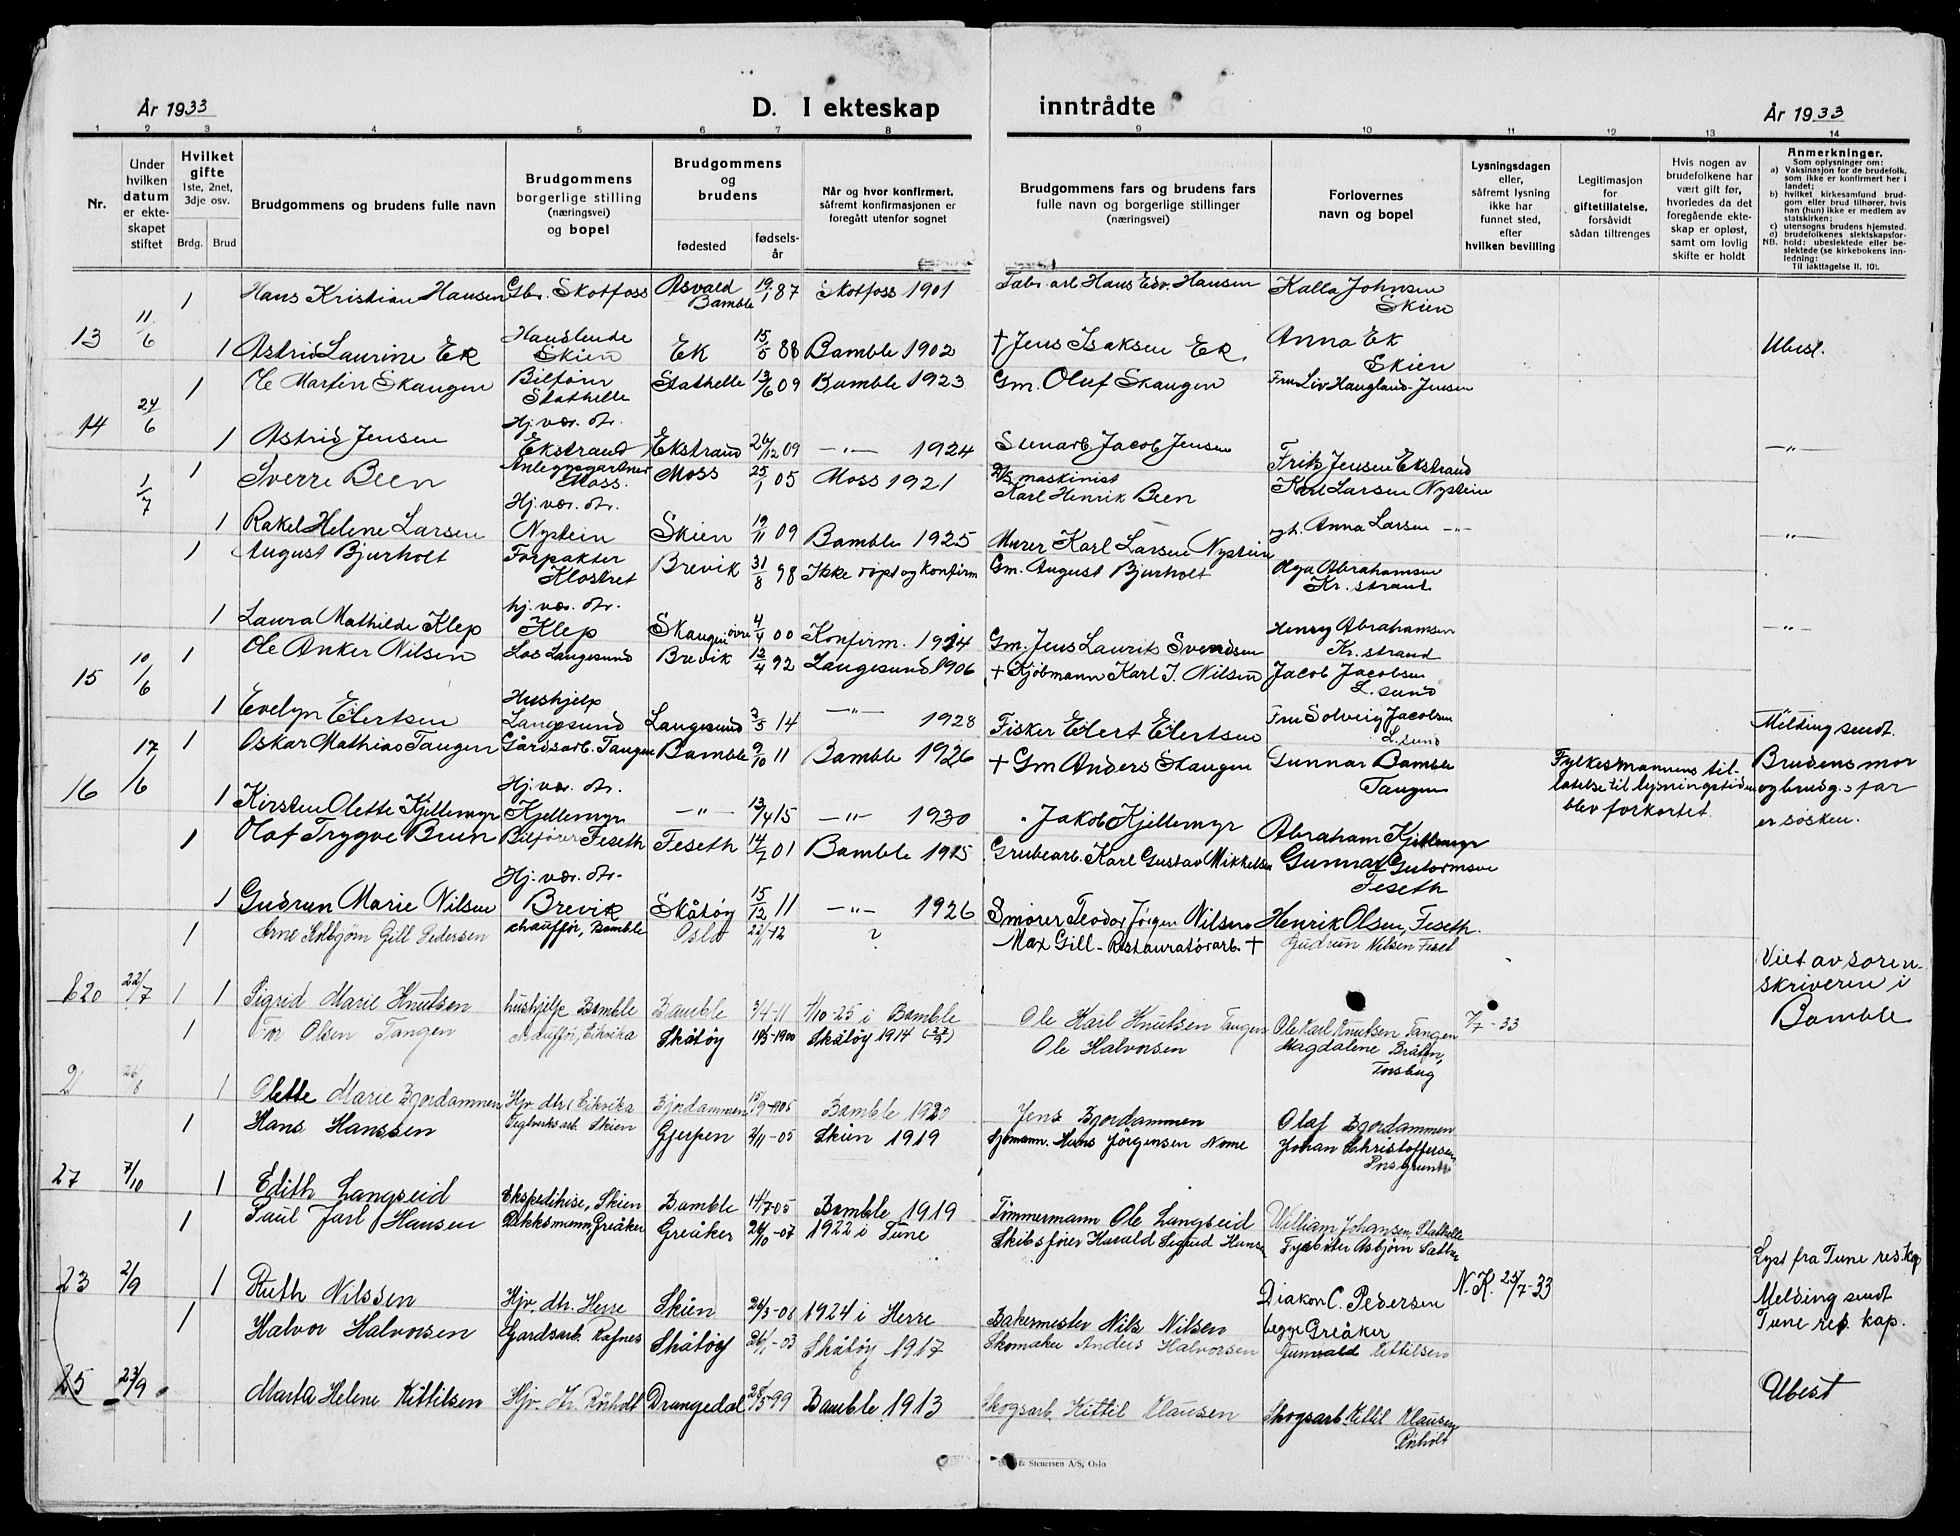 År 1933
D. I ekteskap
inntrådte
År 1933
1 2 3 4 5 6 7 8 9 10 11 12 13 14
Nr.
Under hvilken datum er ekteskapet stiftet
Hvilket gifte 1ste, 2net, 3dje osv.
Brdg.
Brud
Brudgommens og brudens fulle navn
Brudgommens borgerlige stilling (næringsvei) og bopel
Brudgommens og brudens
fødested
fødselsår
Når og hvor konfirmert, såfremt konfirmasjonen er foregått utenfor sognet
Brudgommens fars og brudens fars fulle navn og borgerlige stillinger (næringsvei)
Forlovernes navn og bopel
Lysningsdagen eller, såfremt lysning ikke har funnet sted, efter hvilken bevilling
Legitimasjon for giftetillatelse, forsåvidt sådan tiltrenges
Hvis nogen av brudefolkene har vært gift før, hvorledes da det foregående ekteskap er opløst, samt om lovlig skifte er holdt
Anmerkninger.
Som oplysninger om:
a) Vaksinasjon for de brudefolk, som ikke er konfirmert her i landet;
b) hvilket kirkesamfund brudgom eller brud tilhører, hvis han (hun) ikke er medlem av statskirken;
c) utensogns brudens hjemsted.
d) brudefolkenes slektskapsforhold: ubeslektede eller beslektede (se kirkebokens innledning:
NB.
Til iakttagelse II. 10).
1 Hans Kristian Hansen Gbr. Skotfoss Åsvald Bamble 19/1 87 Skotfoss 1901 Fabr. arb Hans Edv. Hansen Kalla Johnsen Skien
13 11/6 1 Astrid Laurine Ek Skien Ek 15/5 88 Bamble 1902 † Jens Isaksen Ek. Anna Ek Skien Ubesl.
1 Ole Martin Skaugen Bilfører Stathelle Stathelle 13/6 09 Bamble 1923 Gm. Oluf Skaugen Fru Liv Haugland-Jensen
14 24/6 1 Astrid Jensen Hj. vær. dtr. Ekstrand Ekstrand 26/12 09 —"— 1924 Stenarb Jacob Jensen Fritz Jensen Ekstrand —"—
1/7 1 Sverre Been Anlegsgartner Moss. Moss 25/1 05 Moss 1921 maskinist Karl Henrik Been Karl Larsen Nystein
1 Rakel Helene Larsen Hj. vær. dtr. Nystein Skien 19/11 09 Bamble 1925 Murer Karl Larsen Nystein Anna Larsen —"— —"—
1 August Bjurholt Forpakter Klostret Brevik 31/8 98 Ikke døpt og konfirm Gm. August Bjurholt Olga Abrahamsen Kr. strand
1 Laura Mathilde Klep hj. vær. dtr. Klep Skaugen øvre 4/4 00 Konfirm. 1914 Gm. Jens Laurits Svendsen Henry Abrahamsen Kr. strand —"—
15 10/6 1 Ole Anker Nilsen Los Langesund Brevik 12/4 92 Langesund 1906 † Kjøbmann Karl J. Nilsen Jacob Jacobsen L. sund
1 Evelyn Eilertsen Hushjelp Langesund Langesund 3/5 14 —"— 1928 Fisker Eilert Eilertsen Fru Solveig Jacobsen L. sund Melding sendt.
17/6 1 Oskar Mathias Tangen Gårdsarb. Tangen Bamble 9/10 11 Bamble 1926 † Gm Anders Skaugen Gunnar Bamble Tangen Fylkesmannens tillatelse til lysningstiden blev forkortet. Brudens mor og brudg.s far er søsken.
16 1 Kirsten Olette Kjellemyr Hj. vær. dtr. Kjellemyr —"— 13/4 15 —"— 1930 Jakob Kjellemyr Abraham Kjellemyr
1 Olaf Trygve Brun Bilfører Feseth Feseth 14/7 01 Bamble 1915 Grubearb. Karl Gustav Mikkelsen Gunnar Gutormsen Feseth
1 Gudrun Marie Nilsen Hj. vær. dtr. Brevik Skåtøy 15/12 11 —"— 1926 Smører Teodor Jørgen Nilsen Henrik Olsen, Feseth.
1 Arne Kolbjørn Gill Pedersen chauffør, Bamble Oslo 22/11-12 ? Max Gill - Restauratørarb. † Gudrun Nilsen Feset
20 22/7 1 1 Sigrid Marie Knutsen hushjelp Bamble Bamble 3/4-11 4/10-25 i Bamble Ole Karl Knutsen Tangen Ole Karl Knutsen Tangen 7/7-33 Viet av sorenskriveren i Bamble
1 Tor Olsen Tangen chauffør, Eikvika Skåtøy 1900 Skåtøy 1914 Ole Halvorsen Magdalene Bråten,
21 26/8 1 Olette Marie Bjordammen Hjv. dtr. Eikvika Bjordammen 15/9-1905 Bamble 1920 Jens Bjordammen Olaf Bjordammen
1 Hans Hanssen Teglverksarb. Skien Gjerpen 2/11-05 Skien 1919 Sjømann. Hans Jørgensen Nome Johan Christoffersen, Porsgrunn
27 7/10 1 Edith Langseid Ekspeditrise, Skien Bamble 14/7-05 Bamble 1919 Tømmermann Ole Langseid William Johansen, Stathelle
1 Paul Jarl Hansen Dekksmann, Greåker Greåker 26/10-07 1922 i Tune Skibsfører Harald Sigurd Hansen Fyrbøter Asbjørn Lyst fra Tune res. kap
23 2/9 1 Ruth Nilssen Hjv. dtr. Herre Skien 26/3-08 1924 i Herre Bakermester Nils Nilsen Diakon C. Pedersen begge Greåker N.K. 25/7-33 Melding sendt Tune res. kap.
1 Halvor Halvorsen Gjårdsarb. Rafnes Skåtøy 26/1-03 Skåtøy 1917 Skomaker Anders Halvorsen Gunvald Kittilsen
25 23/9 Marta Helene Kittilsen Hjv. dtr. Rönholt Drangedal 28/5-99 Bamble 1913 Skogsarb. Kittil Klausen Skogsarb. Kittil Klausen Rönholt Ubesl
& Stenersen A/S, Oslo